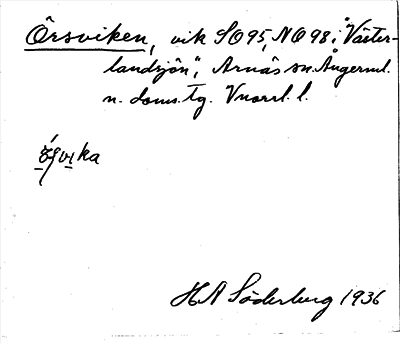 Örsviken, vik SO95, NO98 i "Väster-
landsjön", Arnäs sn. Ångerml.
n. doms. Tg. Vnorrl. l.
vika
H A Söderberg 1936